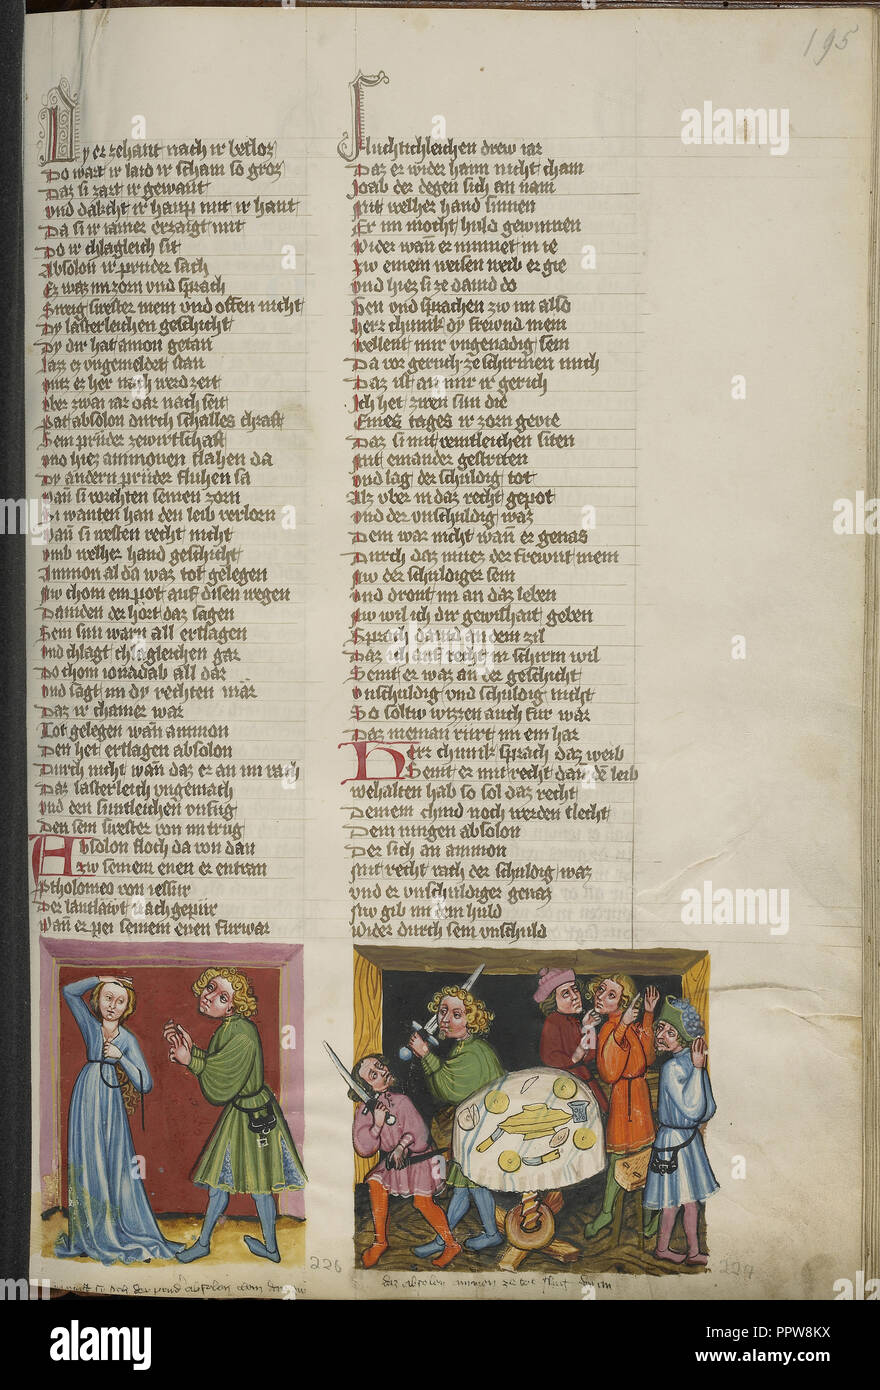 195
Dy er zehant nach ir verlos
Do wart ir laid ir scham so groz
Daz si zart ir gewant
Und dakcht ir haup mit ir hant
Da si ir iamer erzaigt mit
Do ir chlagleich sit
Absolon ir prüder sach
Er waz im zorn und sprach
Sweig swester mein und offen nicht
Dy lasterleichen geschicht
Dy dir hat amon getan
Laz ez ungemeldet stan
er her nach werd zeit
Uber zwai iar dar nach seit
Pat absolon durch schalles chraft
Sein prüder ze wirtschaft
Und hiez ammonen slahen da
Dy andern prüder fluhen sa
Wan si vorchten seinen zorn
Si wanten han den leib verlorn
Wan si westen recht nicht
Umb welher hand geschicht
Ammon al da waz tot gelegen
Nw chom ein pot auf disen wegen
Dauiden der hort daz sagen
Sein sun warn all erslagen
Und chlagt chlagleichen gar
Do chom ionadab all dar
Und sagt im dy rechten mär
Daz ir chainer war
Tot gelegen wan ammon
Den het erslagen absolon
Durch nicht wan daz er an im rach
Daz lasterleich ungemach
Und den suntleichen unfug
Den sein swester von im trug
Absolon floch da von dan
Zw seinem enen er entran
Ptholomeo von iessur
Der lantlawt nachgepur
Wan er pei seinem enen furwar
Fluchtichleichen drew iar
Daz er wider haim nicht cham
Joab der degen sich an nam
Mit welher hand sinnen
Er im mocht huld gewinnen
Wider wan er minnet in ie
Zw einem weisen weib er gie
Und hiez si ze dauid do
Gen und sprachen zw im also
Herr chunik dy frewnd mein
Wellent mir ungenadig sein
Da vor geruch ze schirmen mich
Daz ist an mir ir gerich
Ich het zwen sun die
Eines tages ir zorn gevie
Daz si mit veintleichen siten
Mit einander gestriten
Und lag der schuldig tot
Alz uber in daz recht gepot
Und der unschuldig waz
Dem war nicht wan er genas
Durch daz muez der frewnt mein
Nw der schuldiger sein
Und drout im an daz leben
Nw wil ich dir gewishait geben
Sprach dauid an dem zil
Daz ich auf recht in schirm wil
Seint er waz an der geschicht
Unschuldig und schuldig nicht
So soltu wizzen auch fur war
Daz nieman rürt im ein har
Herr chunik sprach daz weib
Seint er mit recht dan den leib
Wehalten hab so sol daz recht
Deinem chind noch werden slecht
Dem iungen absolon
Der sich an ammon
Mit recht rach der schuldig waz
Und er unschuldiger genaz
Nw gib im dein huld
Wider durch sein unschuld
226
227
daz absolon ammon ze tot slug
alamy
Image ID: PPW8KX
www.alamy.com